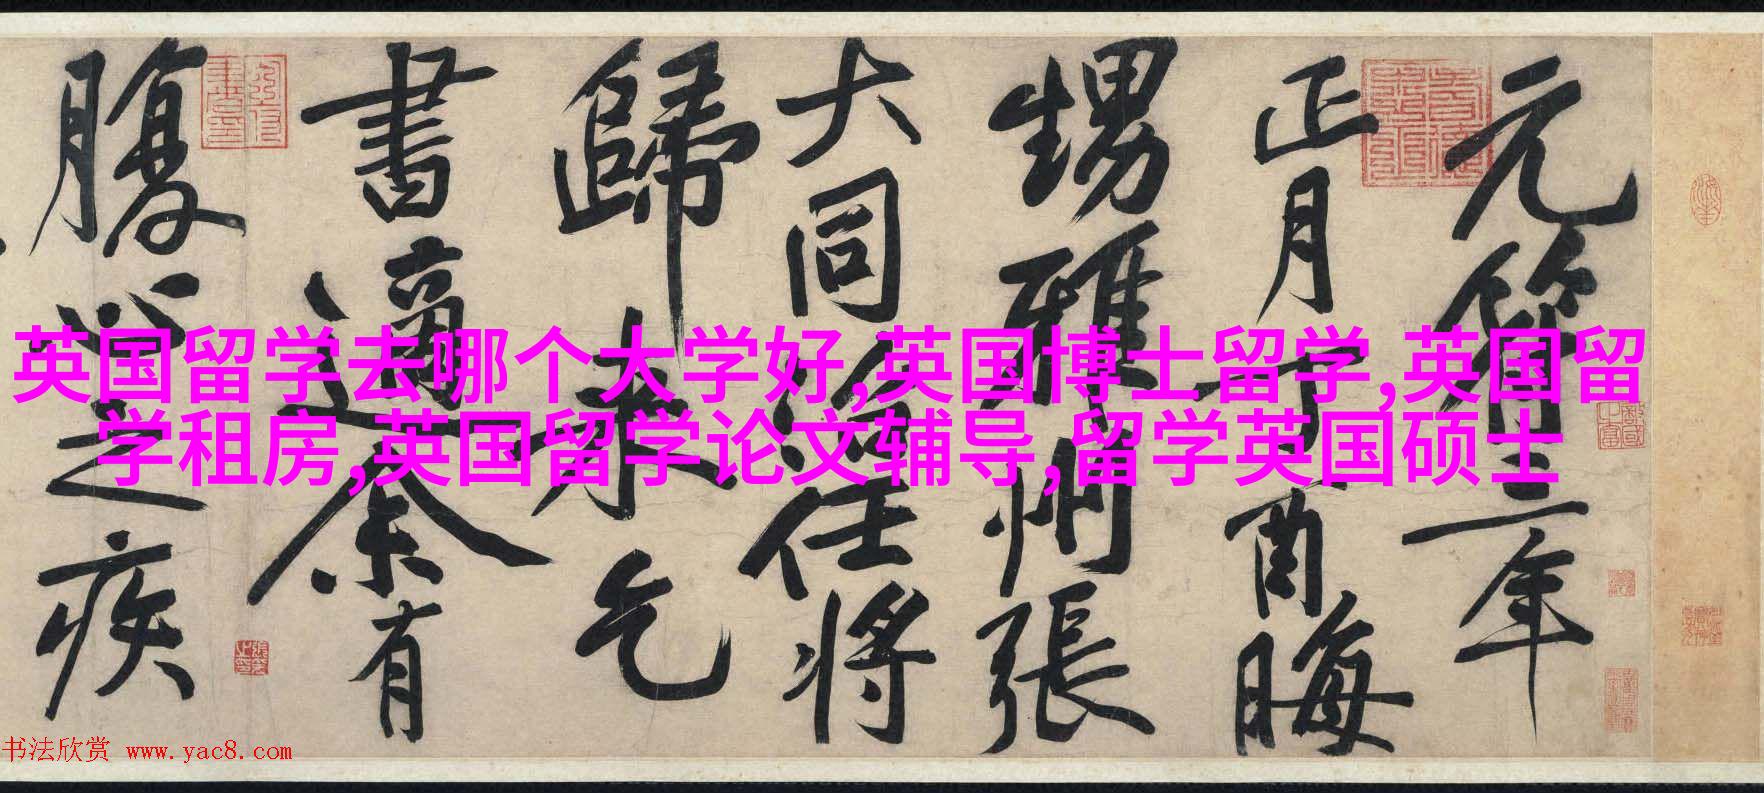 元符三年
正月丁酉晦
甥雅州張
大同治任將
歸來乞
書適余有
腹心之疾
英国留学去哪个大学好,英国博士留学,英国留
学租房,英国留学论文辅导,留学英国硕士
书法欣赏 www.yac8.com